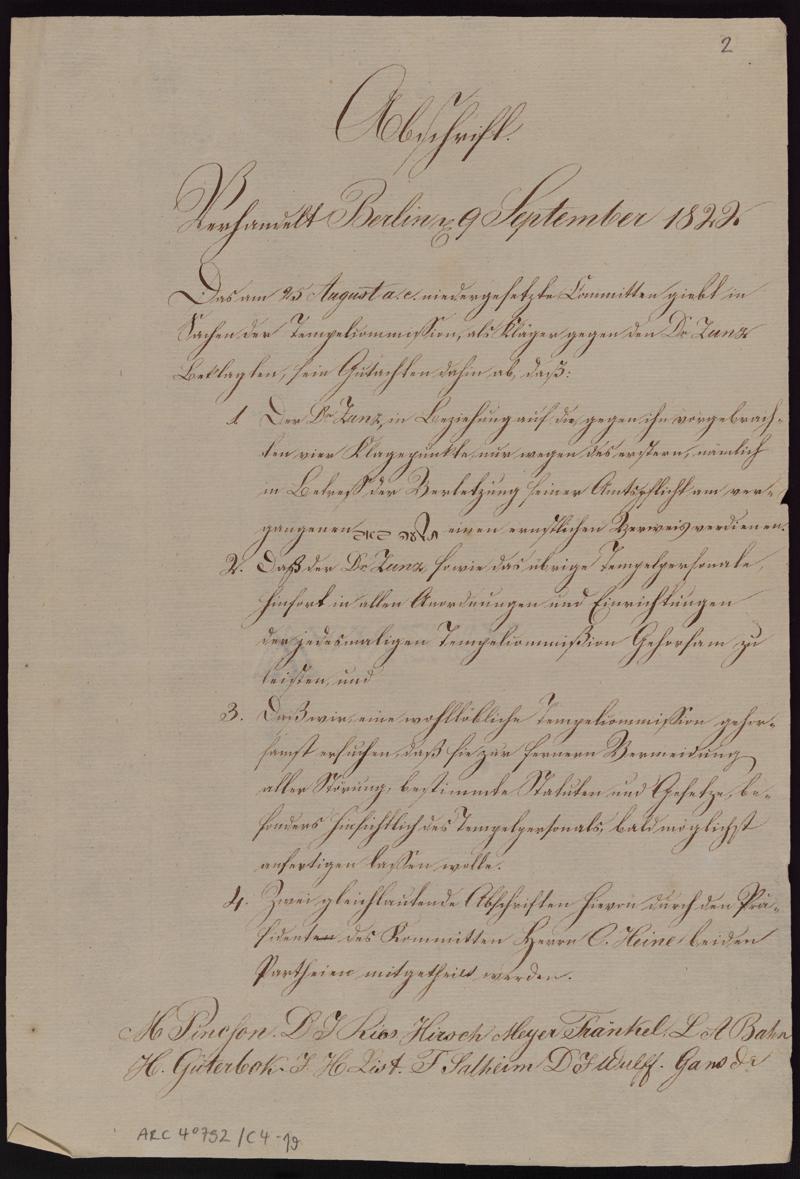 2
Abschrift.
Verhandelt Berlin 9 September 1822
Das am 25 August a.c. niedergesetzte Committen giebt in
Sachen der Tempelcommission, als Kläger gegen den Dr Zunz
Beklagten, sein Gutachten dahin ab, daß:
1 Der Dr Zunz, in Beziehung auf die gegen ihn vorgebrach-
ten vier Klagepunkte nur wegen des erstern, nämlich
in Betreff der Verletzung seiner Amtspflicht am ver-
gangenen einen ernstlichen Verweis verdienen.
2. Daß der Dr Zunz sowie das übrige Tempelpersonale,
hinfort in allen Anordnungen und Einrichtungen
der jedesmaligen Tempelcommißion Gehorsam zu
leisten, und
3. Daß wir, eine wohllöbliche Tempelcommission gehor-
samst ersuchen, daß sie zur fernern Vermeidung
aller Störung, bestimmte Statuten und Gesetze, be-
sonders hinsichtlich des Tempelpersonals, bald möglichst
anfertigen lassen wolle.
4. Zwei gleichlautende Abschriften hievon durch den Prä-
sidenten des Kommitten Herrn C. Heine beiden
Partheien mitgetheilt werden.
M Pincson. D J Ries Hirsch Meyer Fränkel. L A Bahn
H. Güterbok. J. H List. T Salheim D J Wulff. Gans Dr
ARC 4° 792/C4-19